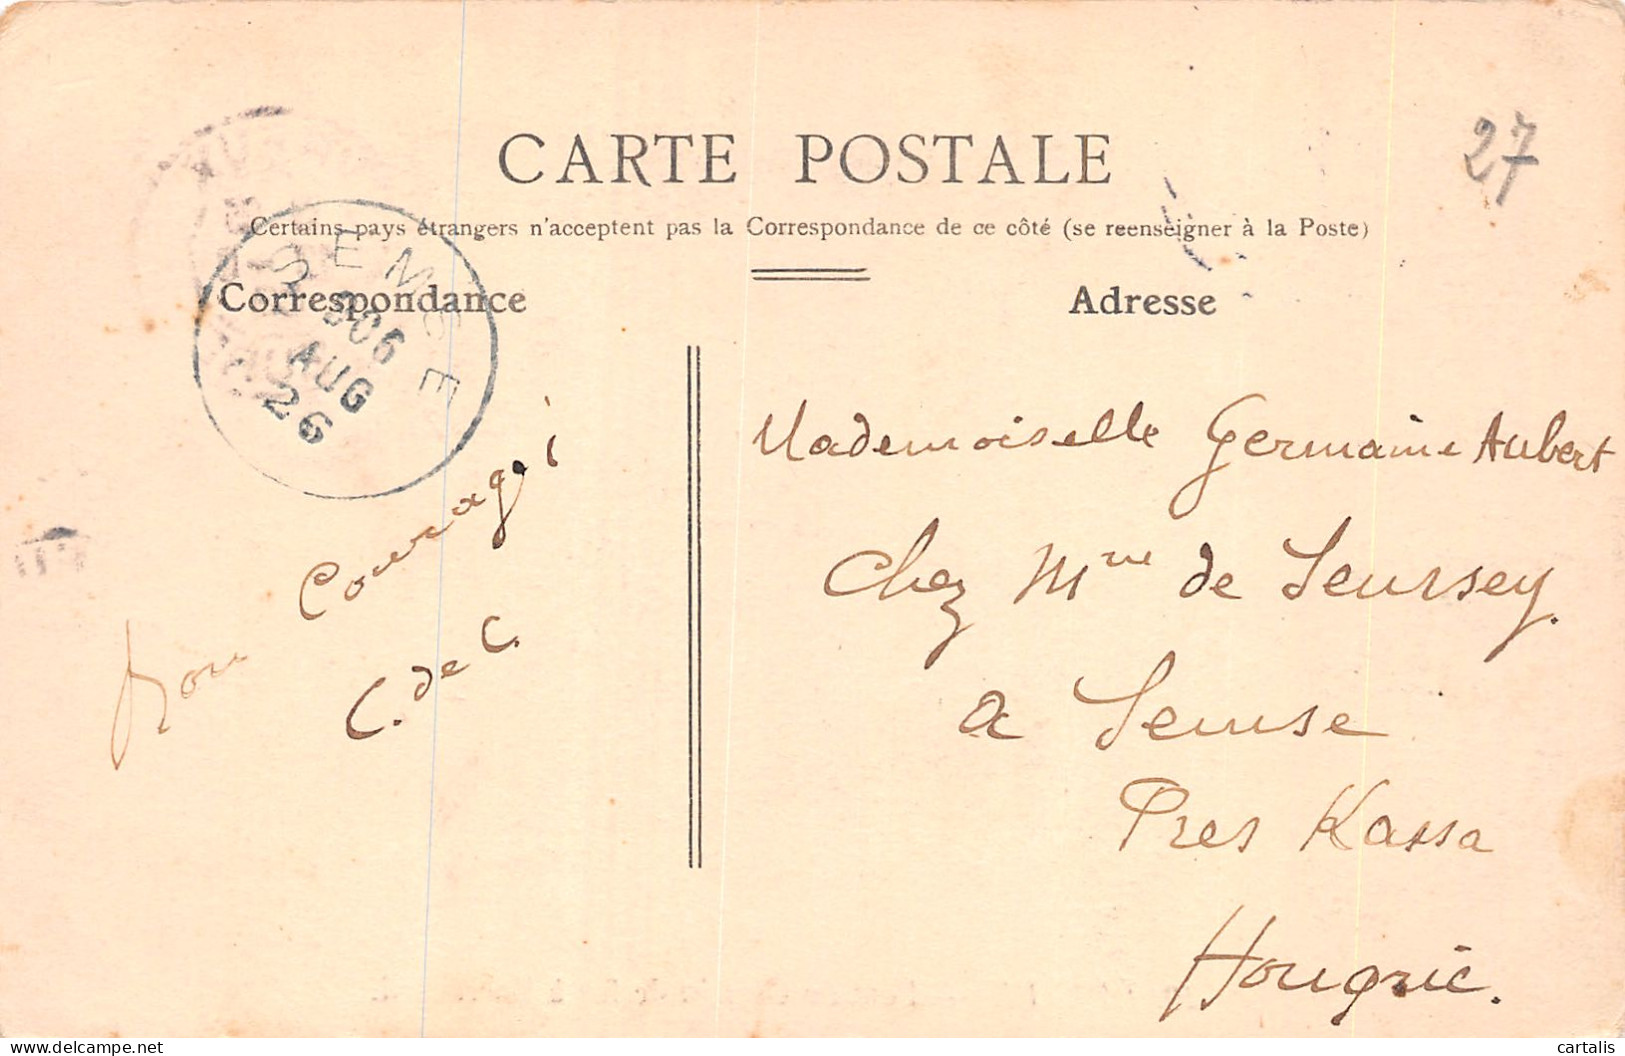 27
CARTE POSTALE
Certains pays étrangers n'acceptent pas la Correspondance de ce côté (se reenseigner à la Poste)
Correspondance
Adresse
SEMSE
906
AUG
26
Mademoiselle Germaine Aubert
Chez Mme de Semsey.
a Semse
Pres Kassa
Hongrie.
Bon Courage!
C. de C.
cartalis
delcampe.net